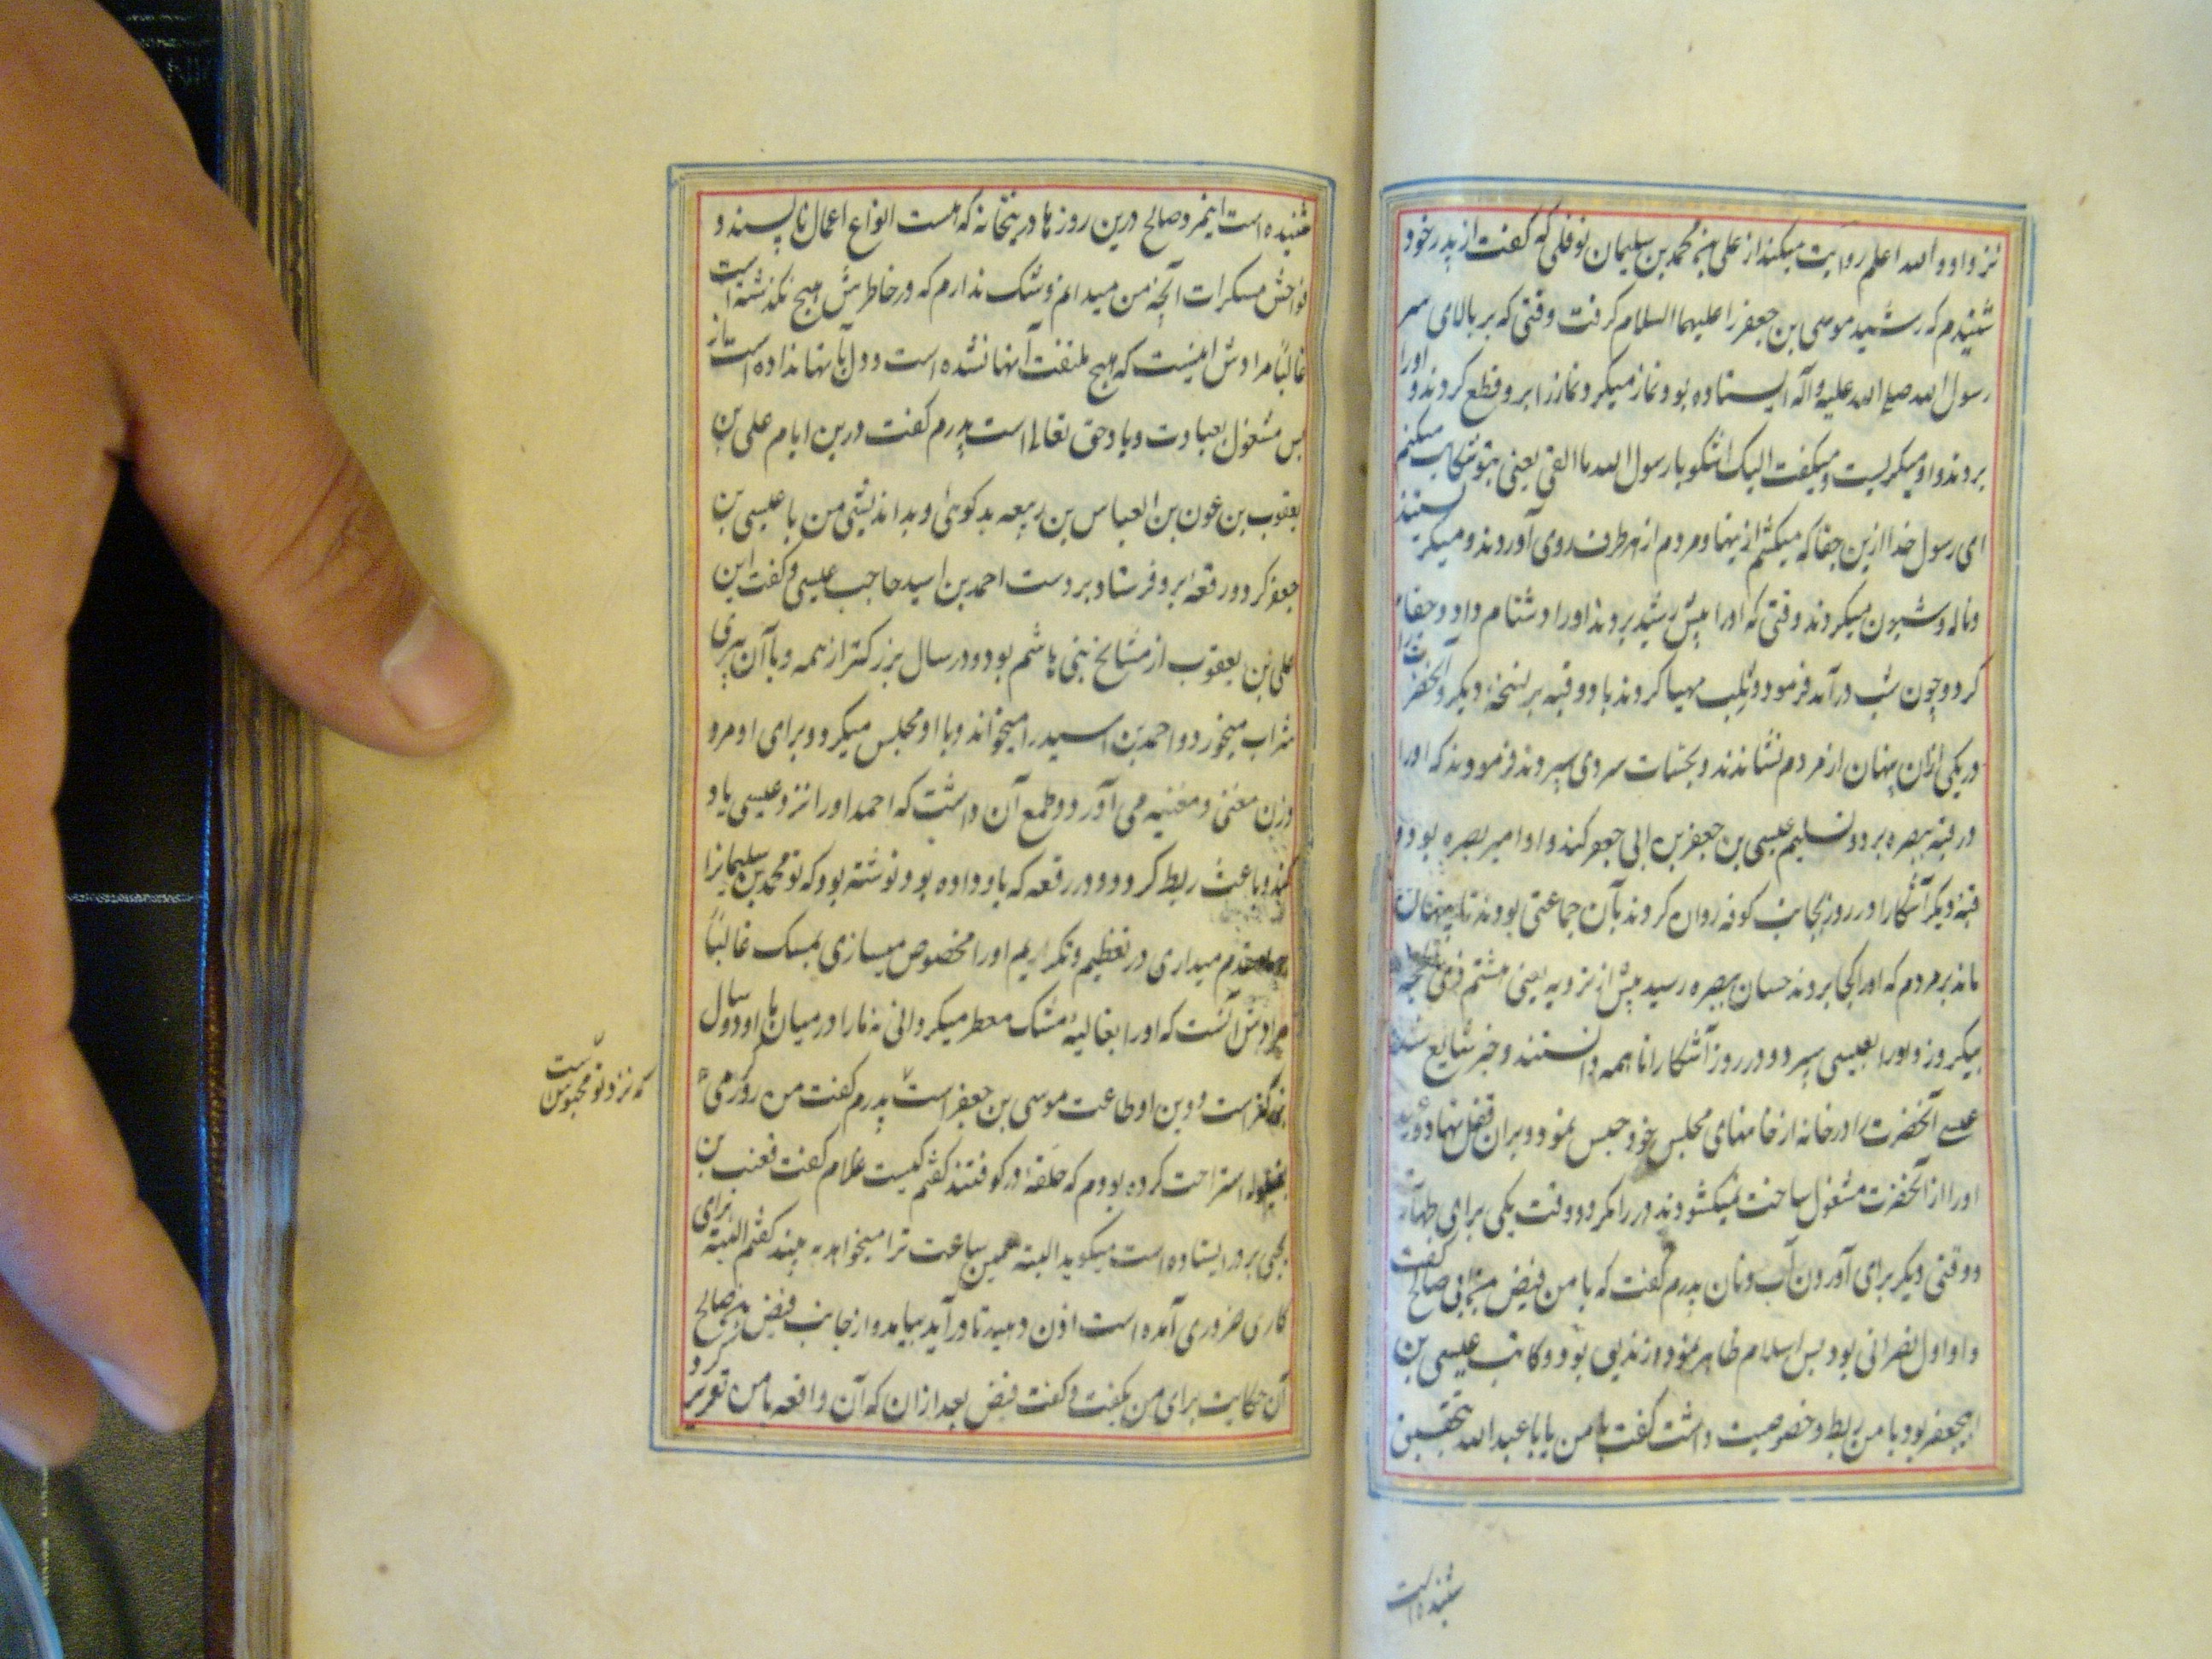 نزد او و الله اعلم روایت میکند از علی بن محمد بن سلیمان نوفلی که گفت از پدر خود
شنیدم که رشید موسی بن جعفر را علیهما السلام گرفت وقتی که بر بالای سر
رسول الله صلی الله علیه و آله ایستاده بود و نماز میکرد و نماز را برو قطع کردند و اورا
بردند و او میگریست و میگفت الیک اشکو یا رسول الله ما القی یعنی بتو شکایت میکنم
ای رسول خدا ازین جفا که میکشم از ینها و مردم از هر طرف روی آوردند و میگریستند
و ناله و شیون میکردند وقتی که اورا پیش رشید بردند اورا دشنام داد و جفا
کرد و چون شب درآمد فرمود و مهیا کردند با دو قبه بر دیگر و آنحضرت را
در یکی ازان پنهان از مردم نشاندند و بحسان سروی سپردند و فرمودند که اورا
در قبه ببصره برد و تسلیم عیسی بن جعفر بن ابی جعفر کند و او امیر بصره بود و
قبه دیگر آشکارا در روز بجانب کوفه روان کردند بآن جماعتی بودند تا پنهان
ماند بر مردم که اورا کجا بردند حسان ببصره رسید پیش از ترویه یعنی هشتم ذی حجه
بیکروز و اورا بعیسی سپرد و در روز آشکارا تا همه دانستند و خبر شایع شد
عیسی آنحضرت را در خانه از خانهای مجلس خود حبس نمود و بران قفل نهاد و
اورا از آنحضرت مشغول ساخت نمیکشودند در را مگر دو وقت یکی برای طهارت
و وقتی دیگر برای آوردن آب و نان پدرم گفت که با من فیض بن ابی صالح گفت
و او اول نصرانی بود پس اسلام ظاهر نمود و زندیق بود و کاتب عیسی بن
ابیجعفر بود و با من ربط و خصوصیت داشت گفت با من یا با عبد الله بتحقیق
شنیده است
شنیده است اینمرد صالح درین روزها درینخانه که هست انواع اعمال ناپسند و
فواحش مسکرات آنچه من میدانم و شک ندارم که در خاطرش هیچ نگذشته است
غالبا مرادش اینست که هیچ ملتفت آنها نشده است و دل بآنها نداده است از
بس مشغول بعبادت و یاد حق تعالی است پدرم گفت درین ایام علی بن
یعقوب بن عون بن العباس بن ربیعه بدگوئی و بد اندیشی من با عیسی بن
جعفر کرد و رقعه برو فرستاد بر دست احمد بن اسید حاجب عیسی و گفت این
علی بن یعقوب از مشایخ بنی هاشم بود و در سال بزرگتر از همه و با آن پیری
شراب میخورد و احمد بن اسید را میخواند و با او مجلس میکرد و برای او مرد
و زن مغنی و مغنیه می آورد و طمع آن داشت که احمد اورا نزد عیسی یاد
کند و باعث ربط گردد و در رقعه که باو داده بود نوشته بود که تو محمد بن سلیمان را
مقدم میداری در تعظیم و تکریم و اورا مخصوص میسازی بمسک غالبا
مرادش آنست که اورا بغالیه مشک معطر میکردانی نه مارا و در میان ما او دو سال
است و دین او طاعت موسی بن جعفر است پدرم گفت من روز گرمی
که نزد تو محبوس است
بقیلوله استراحت کرده بودم که حلقه در کوفتند گفتم کیست غلام گفت قعنب بن
یحیی بر در ایستاده است میگوید البته همین ساعت ترا میخواهد به بیند گفتم البته برای
کاری ضروری آمده است اذن دهید تا درآید بیامد و از جانب فیض بن صالح
آن حکایت برای من بگفت و گفت فیض بعد ازان که آن واقعه با من تقریر کرد